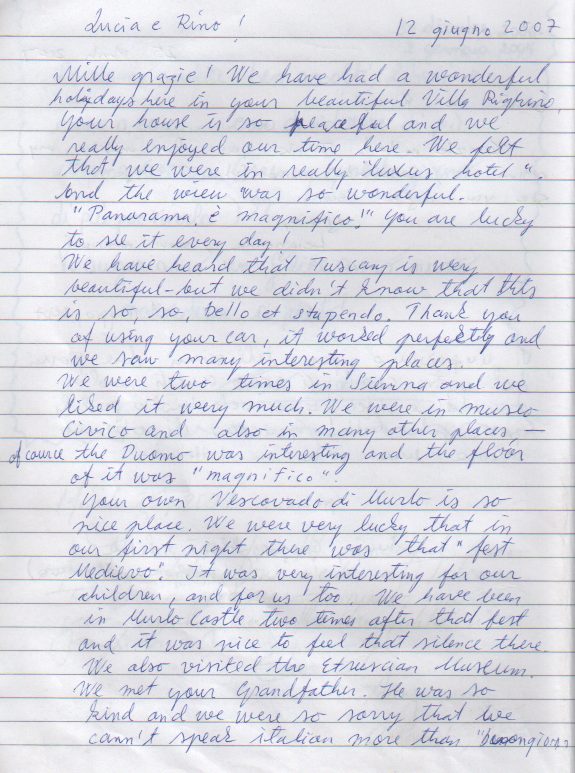 Lucia e Rino! 12 giugno 2007
Mille grazie! We have had a wonderful
holidays here in your beautiful Villa Righino.
Your house is so peaceful and we
really enjoyed our time here. We felt
that we were in really "luxus hotel".
And the view was so wonderful.
"Panarama è magnifico!" You are lucky
to see it every day!
We have heard that Tuscany is wery
beautiful - but we didn't know that this
is so, so, bello et stupendo. Thank you
of using your car, it worked perfectly and
we saw many interesting places.
We were two times in Sienna and we
liked it wery much. We were in museo
Civico and also in many other places, —
of cource the Duomo was interesting and the floor
of it was "magnifico".
Your own Vescovado di Murlo is so
nice place. We were very lucky that in
our first night there was that "fest
Medievo". It was very interesting for our
children, and for us too. We have been
in Murlo Castle two times after that fest
and it was nice to feel that silence there.
We also visited the Etruscian Museum.
We met your Grandfather. He was so
kind and we were so sorry that we
cann't speak italian more than "buongiorn